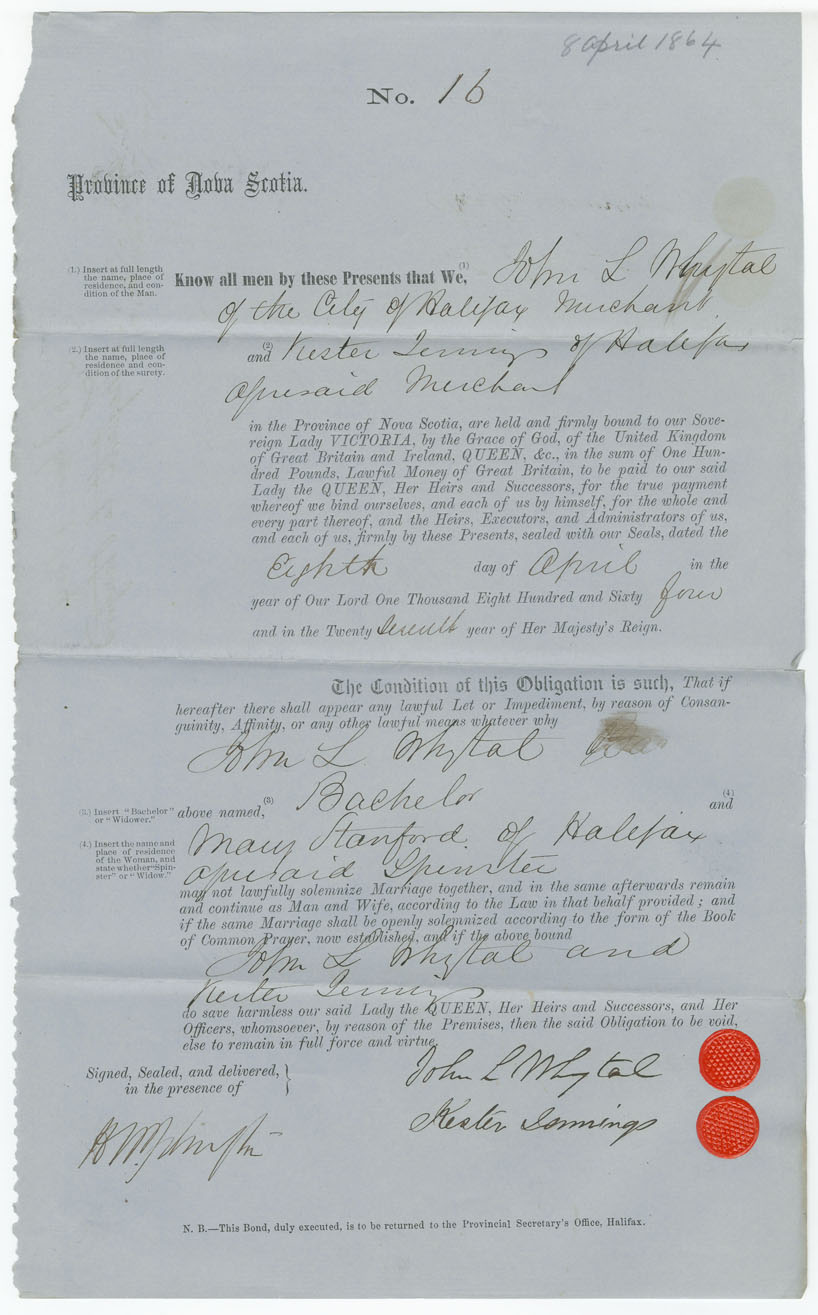 8 april 1864
No. 16
Province of Nova Scotia.
(1.) Insert at full length
the name, place of
residence, and con-
dition of the Man.
Know all men by these Presents that We, (1) John L Whytal
of the City of Halifax Merchant
(2.) Insert at full length
the name, place of
residence and con-
dition of the surety.
and (2) Kester Jennings of Halifax
aforesaid Merchant
in the Province of Nova Scotia, are held and firmly bound to our Sove-
reign Lady VICTORIA, by the Grace of God, of the United Kingdom
of Great Britain and Ireland, QUEEN, &c., in the sum of One Hun-
dred Pounds, Lawful Money of Great Britain, to be paid to our said
Lady the QUEEN, Her Heirs and Successors, for the true payment
whereof we bind ourselves, and each of us by himself, for the whole and
every part thereof, and the Heirs, Executors, and Administrators of us,
and each of us, firmly by these Presents, sealed with our Seals, dated the
Eighth day of April in the
year of Our Lord One Thousand Eight Hundred and Sixty four
and in the Twenty Seventh year of Her Majesty's Reign.
The Condition of this Obligation is such, That if
hereafter there shall appear any lawful Let or Impediment, by reason of Consan-
guinity, Affinity, or any other lawful means whatever why
John L Whytal
(3.) Insert "Bachelor"
or "Widower."
above named, (3) Bachelor and (4)
(4.) Insert the name and
place of residence
of the Woman, and
state whether "Spin-
ster" or "Widow."
Mary Stanford of Halifax
aforesaid Spinster
may not lawfully solemnize Marriage together, and in the same afterwards remain
and continue as Man and Wife, according to the Law in that behalf provided; and
if the same Marriage shall be openly solemnized according to the form of the Book
of Common Prayer, now established, and if the above bound
John L Whytal and
Kester Jennings
do save harmless our said Lady the QUEEN, Her Heirs and Successors, and Her
Officers, whomsoever, by reason of the Premises, then the said Obligation to be void,
else to remain in full force and virtue
Signed, Sealed, and delivered,
in the presence of
John L Whytal
Kester Jennings
N. B.—This Bond, duly executed, is to be returned to the Provincial Secretary's Office, Halifax.